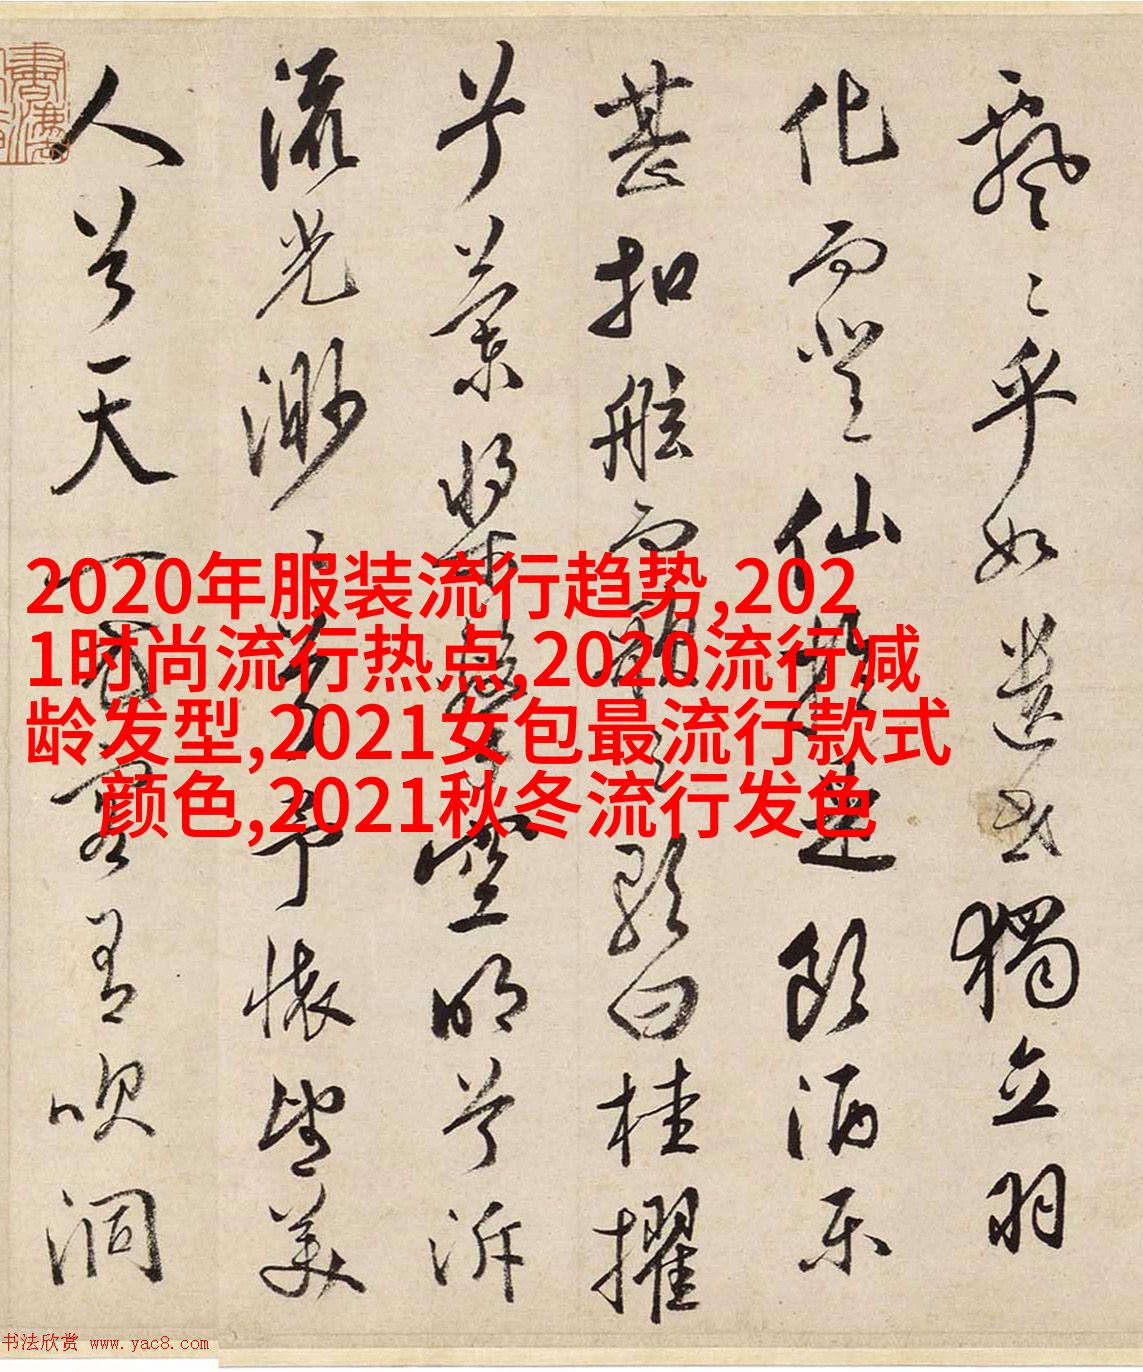 飄〻乎如遺世獨立羽
化而登仙於是飲酒樂
甚扣舷而歌之歌曰桂櫂
兮蘭槳擊空明兮泝
流光渺〻兮予懷望美
人兮天一方客有吹洞
2020年服装流行趋势,202
1时尚流行热点,2020流行减
龄发型,2021女包最流行款式
颜色,2021秋冬流行发色
书法欣赏 www.yac8.com